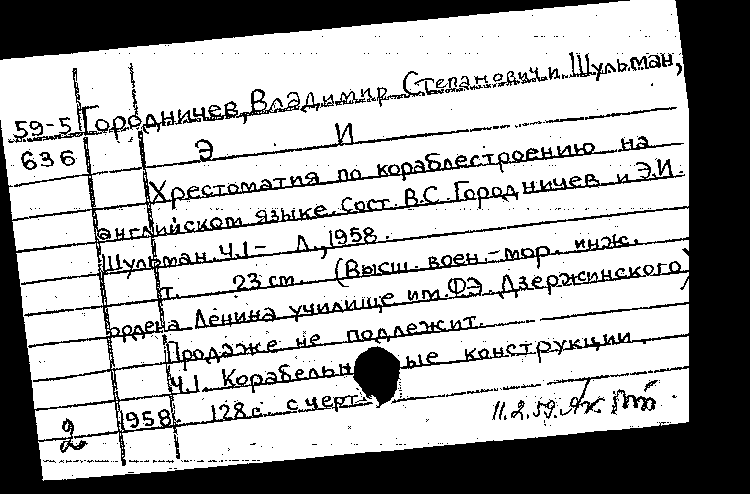 59-5 Городничев, Владимир Степанович и Шульман,
636 Э И
Хрестоматия по кораблестроению на
английском языке. Сост. В.С. Городничев и Э.И.
Шульман. Ч.1- Л., 1958.
т. 23 cm. (Высш. воен.-мор. инж.
ордена Ленина училище им. Ф.Э. Дзержинского)
Продаже не подлежит.
Ч.1. Корабельные конструкции.
1958. 128 с. с черт.
2 11.2.59.